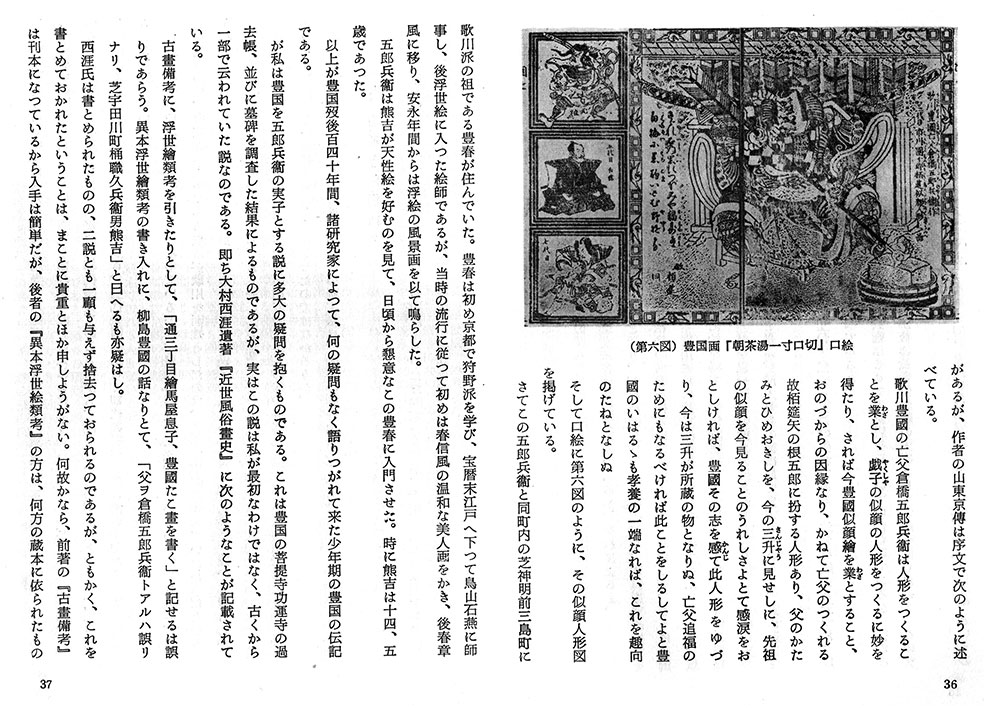 （第六図）豊国画『朝茶湯一寸口切』口絵
があるが、作者の山東京傳は序文で次のように述
べている。
歌川豊國の亡父倉橋五郎兵衞は人形をつくるこ
とを業とし、戯子の似顔の人形をつくるに妙を
得たり、されば今豊國似顔繪を業とすること、
おのづからの因縁なり、かねて亡父のつくれる
故栢筵矢の根五郎に扮する人形あり、父のかた
みとひめおきしを、今の三升に見せしに、先祖
の似顔を今見ることのうれしさよとて感涙をお
としければ、豊國その志を感て此人形をゆづ
り、今は三升が所蔵の物となりぬ、亡父追福の
ためにもなるべければ此ことをしるしてよと豊
國のいはるゝも孝養の一端なれば、これを趣向
のたねとなしぬ
そして口絵に第六図のように、その似顔人形図
を掲げている。
さてこの五郎兵衞と同町内の芝神明前三島町に
36
歌川派の祖である豊春が住んでいた。豊春は初め京都で狩野派を学び、宝暦末江戸へ下つて鳥山石燕に師
事し、後浮世絵に入つた絵師であるが、当時の流行に従つて初めは春信風の温和な美人画をかき、後春章
風に移り、安永年間からは浮絵の風景画を以て鳴らした。
五郎兵衞は熊吉が天性絵を好むのを見て、日頃から懇意なこの豊春に入門させた。時に熊吉は十四、五
歳であつた。
以上が豊国歿後百四十年間、諸研究家によつて、何の疑問もなく語りつがれて来た少年期の豊国の伝記
である。
が私は豊国を五郎兵衞の実子とする説に多大の疑問を抱くものである。これは豊国の菩提寺功運寺の過
去帳、並びに墓碑を調査した結果によるものであるが、実はこの説は私が最初なわけではなく、古くから
一部で云われていた説なのである。即ち大村西涯遺著『近世風俗畫史』に次のようなことが記載されて
いる。
古畫備考に、浮世繪類考を引きたりとして、「通三丁目繪馬屋息子、豊國たこ畫を書く」と記せるは誤
りであらう。異本浮世繪類考の書き入れに、柳島豊國の話なりとて、「父ヲ倉橋五郎兵衞トアルハ誤リ
ナリ、芝宇田川町桶職久兵衞男熊吉」と曰へるも亦疑はし。
西涯氏は書とめられたものの、二説とも一顧も与えず捨去つておられるのであるが、ともかく、これを
書とめておかれたということは、まことに貴重とほか申しようがない。何故かなら、前著の『古畫備考』
は刊本になつているから入手は簡単だが、後者の『異本浮世絵類考』の方は、何方の蔵本に依られたもの
37